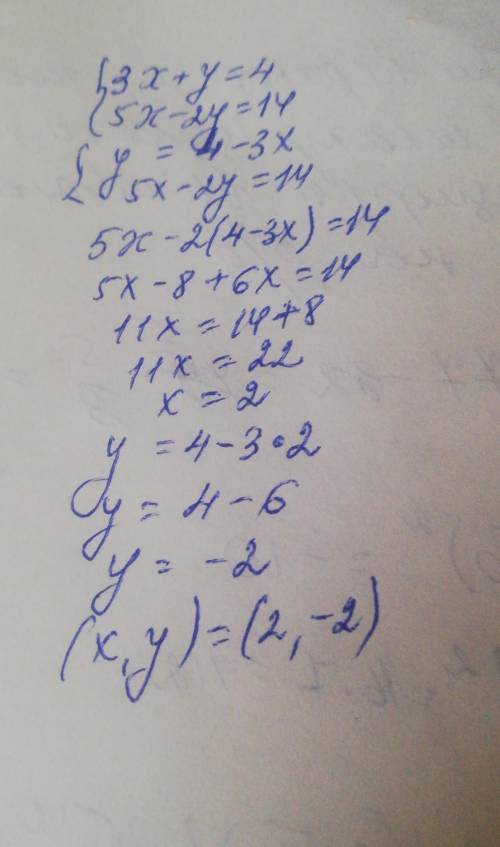 {3x+y=4
{5x-2y=14
{y = 4-3x
{5x-2y=14
5x-2(4-3x)=14
5x-8+6x=14
11x=14+8
11x=22
x=2
y=4-3•2
y=4-6
y=-2
(x,y)=(2,-2)